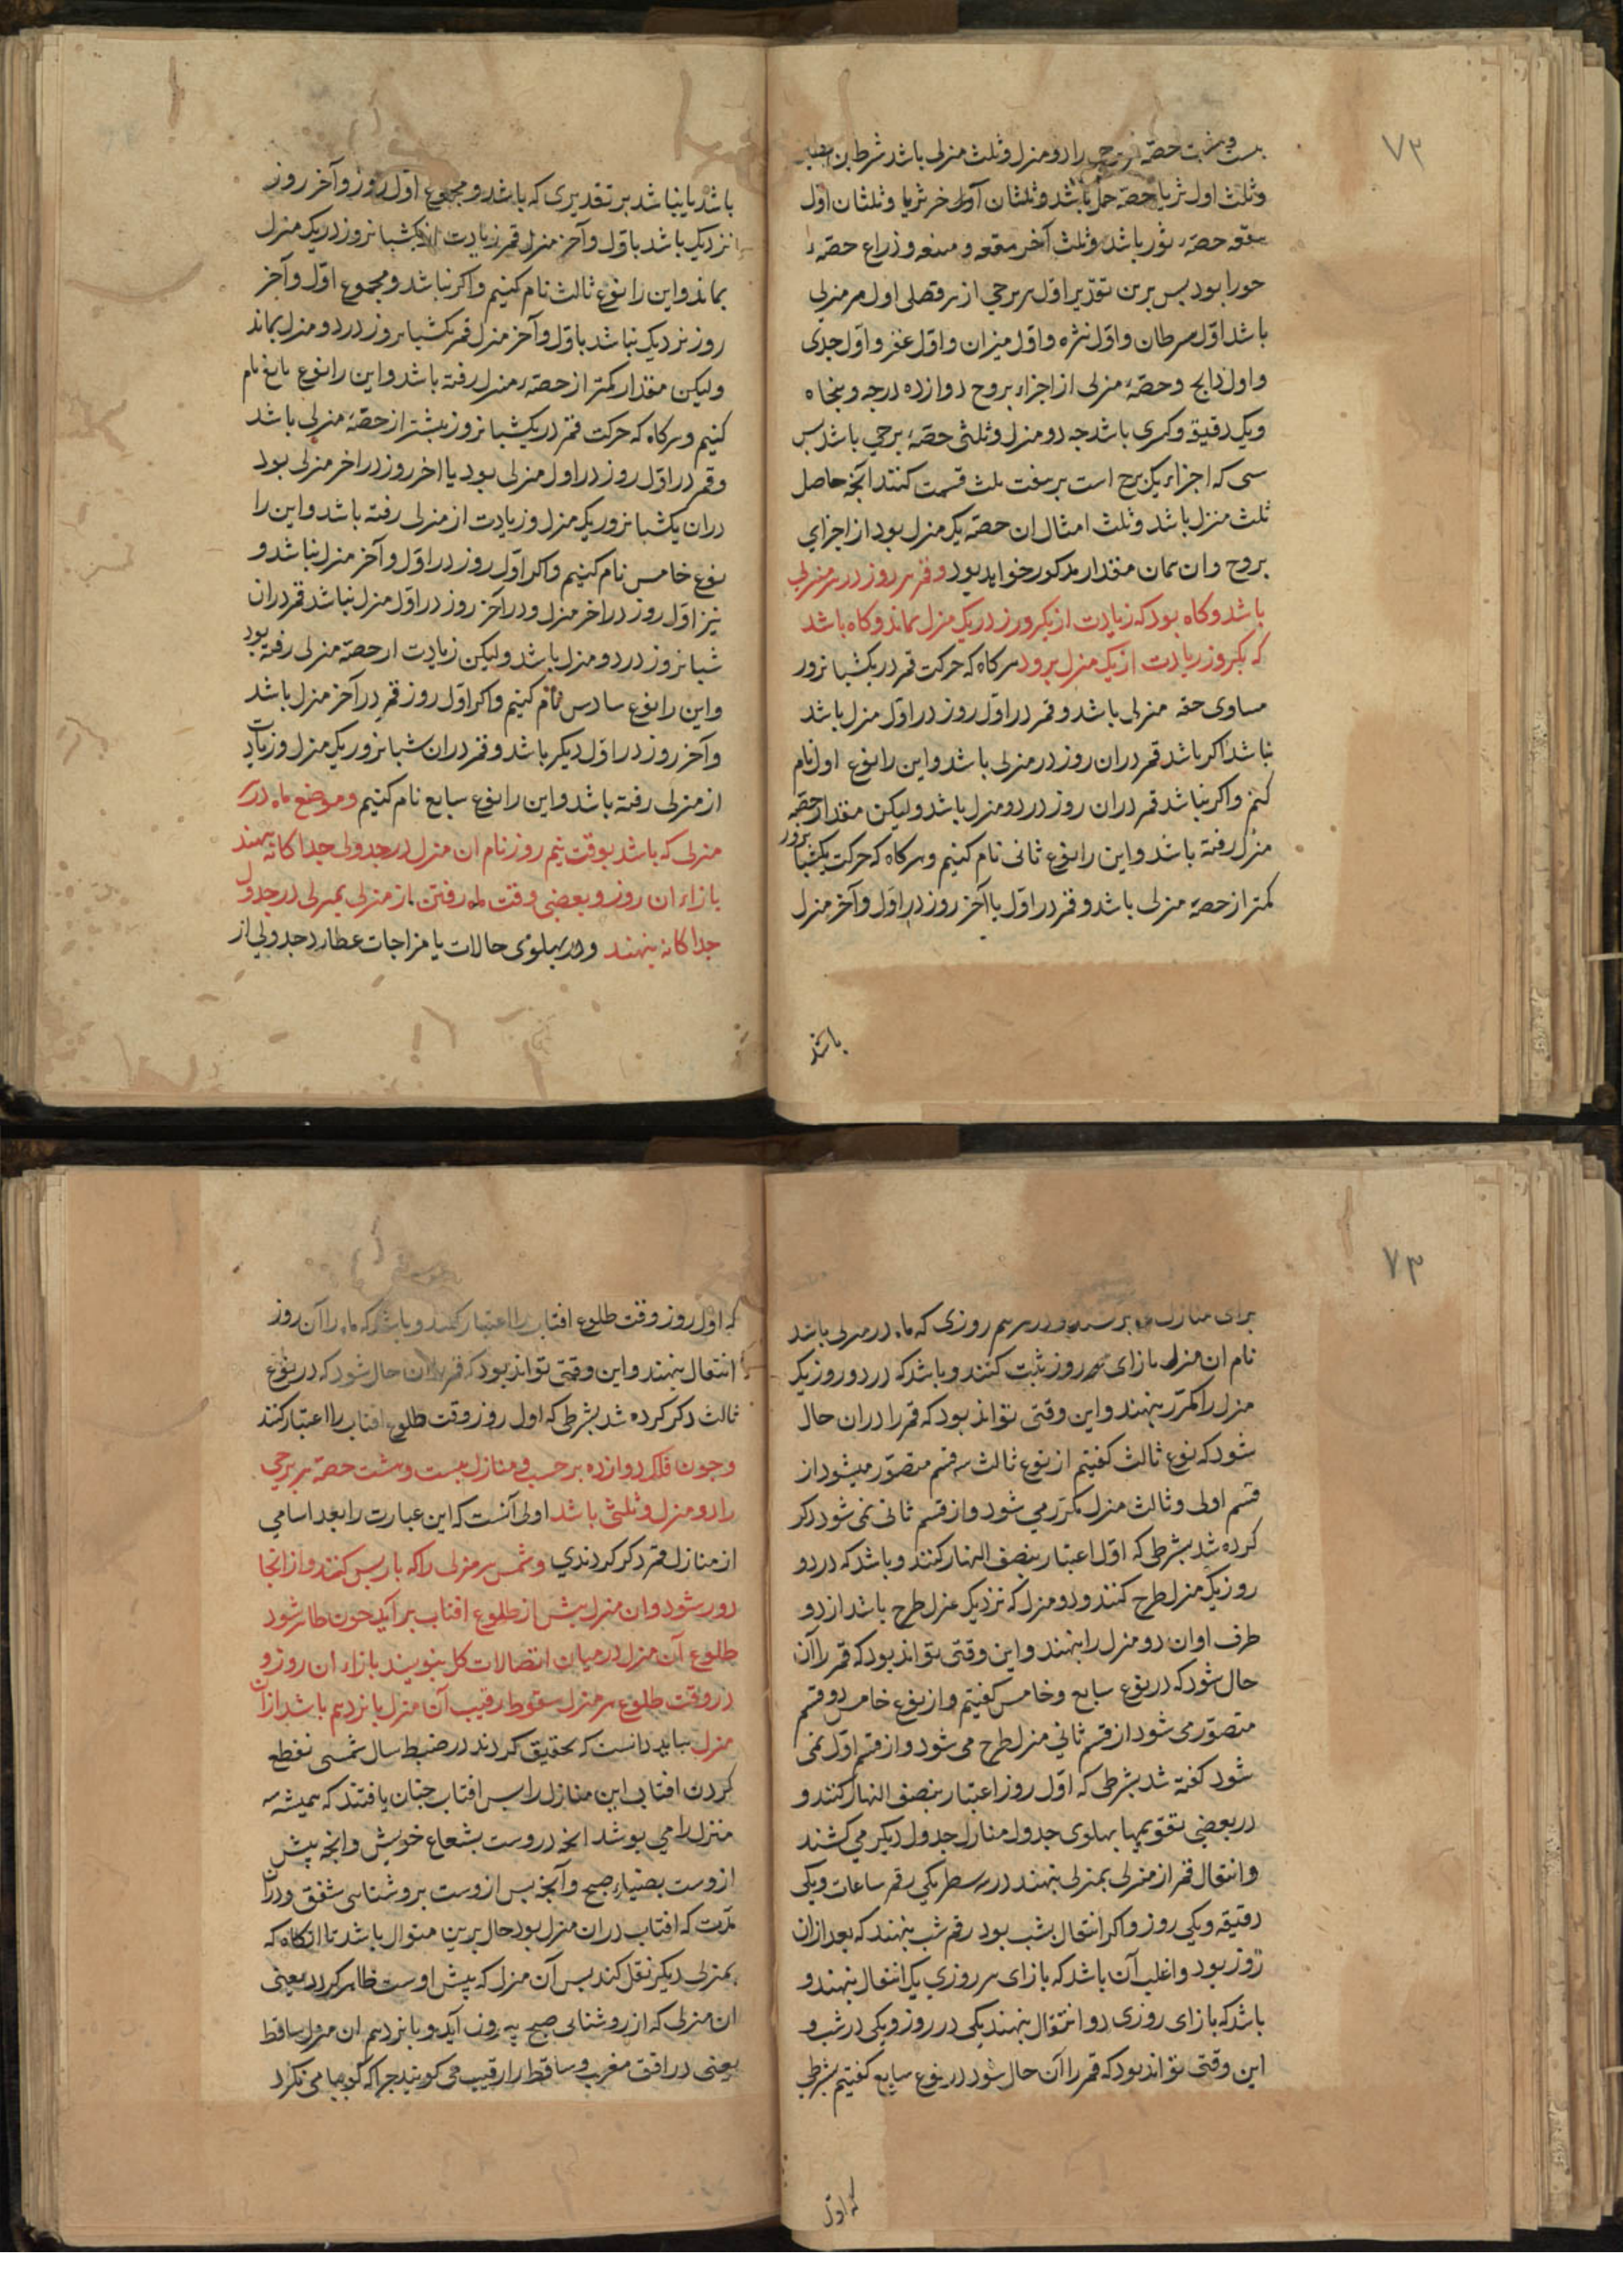 ۷۲
بیست و هشت حصه هر برجی را دو منزل و ثلث منزلی باشد شرطین
وثلث اول ثریا حصهٔ حمل باشد وثلثان آخر ثریا وثلثان اول
هقعه حصهٔ ثور باشد وثلث آخر هقعه و هنعه و ذراع حصهٔ
جوزا بود بس برین تقدیر اول هر برجی از هر فصلی اول هر منزلی
باشد اول سرطان و اول نثره و اول میزان و اول غفر و اول جدی
و اول ذابح و حصهٔ منزلی از اجزاء بروج دوازده درجه و پنجاه
ویک دقیقه و کسری باشد جه دو منزل و ثلثی حصهٔ برجی باشد بس
سی که اجزاء یک برج است بر هفت ثلث قسمت کنند انچه حاصل
ثلث منزل باشد و ثلث امثال ان حصه یک منزل بود از اجزای
بروج وان همان مقدار مذکور خواهد بود و قمر هر روز در هر منزلی
باشد و کاه بود که زیادت از یکروز در یک منزل بماند و کاه باشد
که بکروز زیادت از یک منزل برود هر کاه که حرکت قمر در یکشبانروز
مساوی حصه منزلی باشد و قمر در اول روز در اول منزل باشد
نباشد اکر باشد قمر دران روز در منزلی باشد و این را نوع اول نام
کنیم و اکر نباشد قمر دران روز در دو منزل باشد ولیکن مقدار حصه
منزل رفته باشد و این را نوع ثانی نام کنیم و هر کاه که حرکت یکشبانروز
کمتر از حصهٔ منزلی باشد و قمر در اول یا آخر روز در اول و آخر منزل
باشد
باشد یا نباشد بر تقدیری که باشد و مجموع اول روز و آخر روز
نزدیک باشد باول و آخر منزل قمر زیادت از یکشبانروز در یک منزل
بماند و این را نوع ثالث نام کنیم و اکر نباشد و مجموع اول و آخر
روز نزدیک نباشد باول و آخر منزل قمر یکشبانروز در دو منزل بماند
ولیکن مقدار کمتر از حصهٔ منزل رفته باشد و این را نوع رابع نام
کنیم و هر کاه که حرکت قمر در یکشبانروز بیشتر از حصهٔ منزلی باشد
و قمر در اول روز در اول منزلی بود یا اخر روز در اخر منزلی بود
دران یکشبانروز یک منزل و زیادت از منزلی رفته باشد و این را
نوع خامس نام کنیم و اکر اول روز در اول و آخر منزل نباشد و
نیز اول روز در اخر منزل و در آخر روز در اول منزل نباشد قمر دران
شبانروز در دو منزل باشد ولیکن زیادت از حصه منزلی رفته بود
و این را نوع سادس نام کنیم و اکر اول روز قمر در آخر منزل باشد
و آخر روز در اول دیکر باشد و قمر دران شبانروز یک منزل و زیادت
از منزلی رفته باشد و این را نوع سابع نام کنیم و موضع ماه در
منزلی که باشد بوقت نیم روز نام ان منزل در جدولی جداکانه بنهند
بازاء ان روز و بعضی وقت ماه رفتن از منزلی بمنزلی در جدول
جداکانه بنهند و در پهلوی حالات یا مزاجات عطارد جدولی از
۷۳
برای منازل قمر بر کشند و در هر روزی که ماه در منزلی باشد
نام ان منزل بازای روز ثبت کنند و باشد که در دو روز یک
منزل را مکرر بنهند و این وقتی تواند بود که قمر را دران حال
شود که نوع ثالث کفتیم از نوع ثالث سه قسم متصور میشود از
قسم اولی و ثالث منزل مکرر می شود و از قسم ثانی نمی شود ذکر
کرده شد بشرطی که اول اعتبار بنصف النهار کنند و باشد که در دو
روز یک منزل طرح کنند و دو منزل که نزدیک منزل طرح باشد از دو
طرف او ان دو منزل را بنهند و این وقتی تواند بود که قمر را آن
حال شود که در نوع سابع و خامس کفتیم و از نوع خامس دو قسم
متصور می شود از قسم ثانی منزل طرح می شود و از قسم اول نمی
شود کفته شد بشرطی که اول روز اعتبار بنصف النهار کنند و
در بعضی تقویمها بهلوی جدول منازل جدول دیکر می کشند
و انتقال قمر از منزلی بمنزلی بنهند در سه سطر یکی رقم ساعات و یکی
دقیقه و یکی روز و اکر انتقال بشب بود رقم شب بنهند که بعد ازان
روز بود و اغلب آن باشد که بازای هر روزی یک انتقال بنهند و
باشد که بازای روزی دو انتقال بنهند یکی در روز و یکی در شب و
این وقتی تواند بود که قمر را آن حال شود در نوع سابع کفتیم بشرطی
که اول
که اول روز وقت طلوع افتاب را اعتبار کنند و باشد که ماه را آن روز
انتقال ننهند و این وقتی تواند بود که قمر را ان حال شود که در نوع
ثالث ذکر کرده شد بشرطی که اول روز وقت طلوع افتاب را اعتبار کنند
وجون فلک دوازده برجست و منازل بیست وهشت حصهٔ هر برجی
را دو منزل و ثلثی باشد اولی آنست که این عبارت را بعد اسامی
از منازل قمر ذکر کردندی و شمس هر منزلی را که باز پس کند و از انجا
دور شود و ان منزل بیش از طلوع افتاب بر آید جون ظاهر شود
طلوع آن منزل در میان اتصالات کل بنویسند بازاء ان روز و
در وقت طلوع هر منزل سقوط رقیب آن منزل پانزدهم باشد از ان
منزل بباید دانست که تحقیق کردند در ضبط سال شمسی بقطع
کردن افتاب این منازل را بس افتاب جنان یافتند که همیشه سه
منزل را می بوشد انچه دروست بشعاع خویش و انچه پیش
ازوست بضیاء صبح و آنچه بس ازوست بروشنایی شفق و دران
مدت که افتاب دران منزل بود حال برین منوال باشد تا انکاه که
بمنزلی دیکر نقل کند بس آن منزل که پیش اوست ظاهر کردد یعنی
ان منزلی که از روشنایی صبح بیرون آید و پانزدهم ان منزل ساقط
یعنی در افق مغرب و ساقط را رقیب می کویند جرا که کویا می نکرد